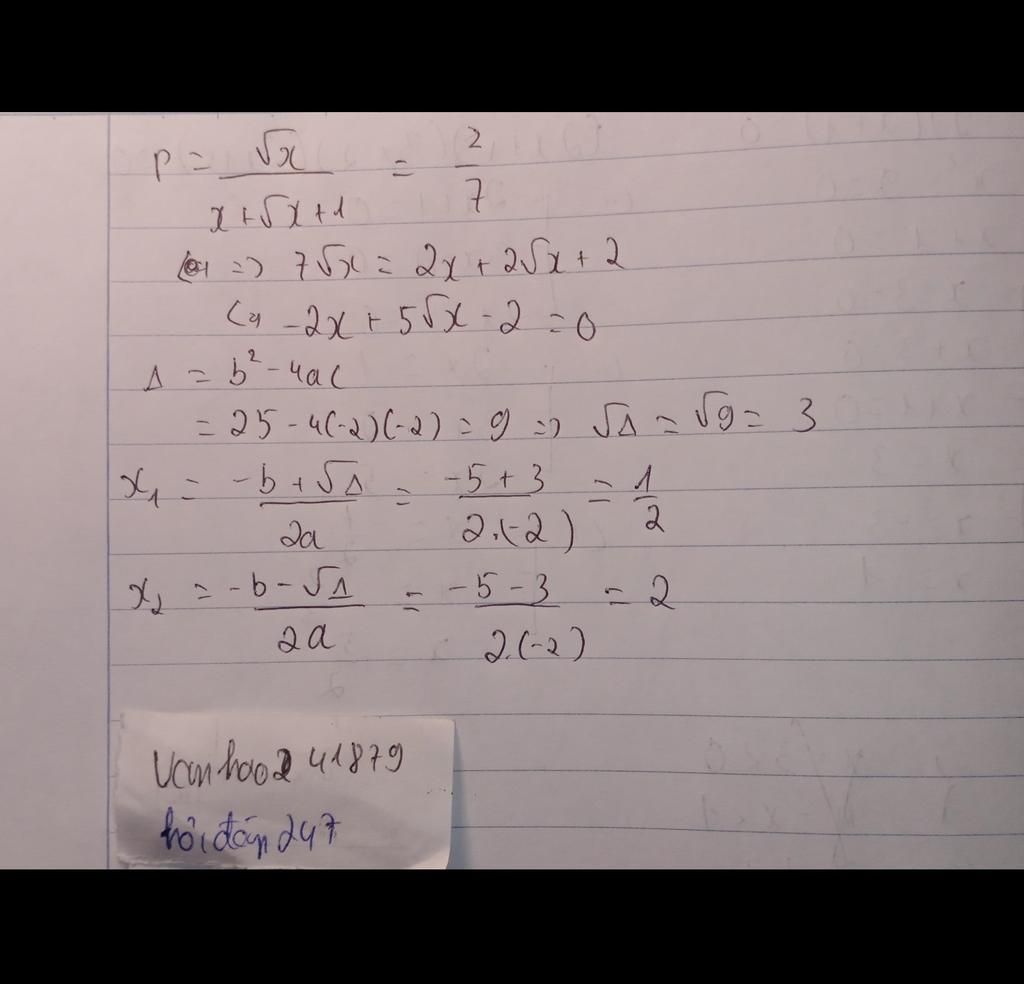 P = √x / (x+√x+1) = 2/7
=> 7√x = 2x + 2√x + 2
-2x + 5√x - 2 = 0
Δ = b² - 4ac
= 25 - 4(-2)(-2) = 9 => √Δ = √9 = 3
x₁ = (-b + √Δ) / 2a = (-5 + 3) / 2.(-2) = 1/2
x₂ = (-b - √Δ) / 2a = (-5 - 3) / 2.(-2) = 2
Vanhao241879
hỏi đáp 247